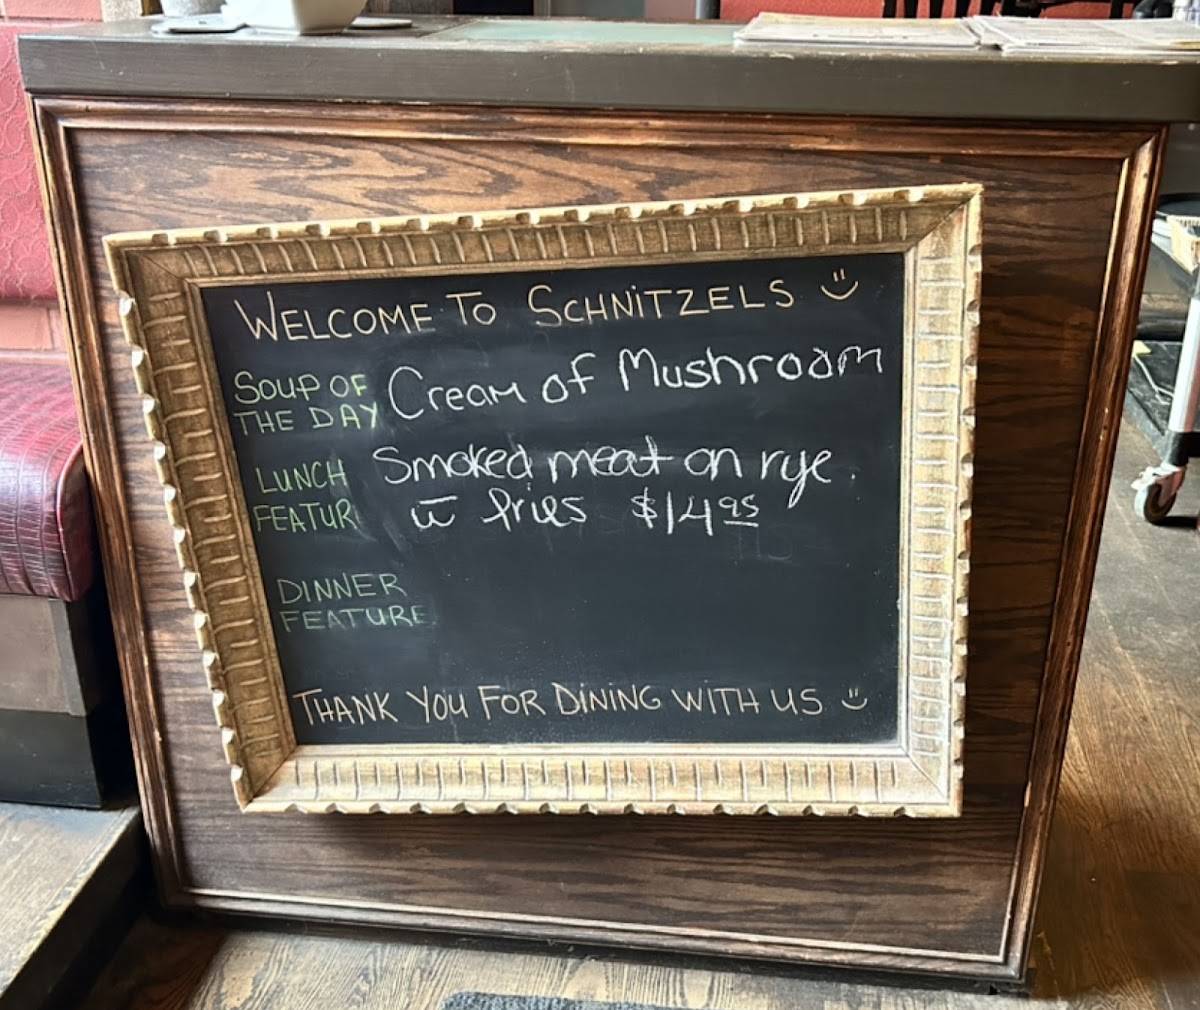 WELCOME TO SCHNiTZELS
SOUP OF
THE DAY
Cream of Mushroom
LUNCH
FEATUR
Smoked meat on rye.
w fries $14.95
DINNER
FEATURE
THANK YOU FOR DiNiNG WITH US